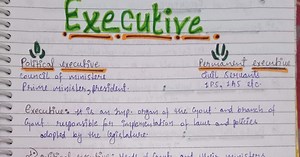 Executive
Political executive
Permanent executive
Council of ministers
Civil Servants
Prime minister, president.
IPS, IAS etc
Executive: it is an imp. organ of the Govt and branch of
Govt responsible for implementation of laws and policies
adopted by the legislature